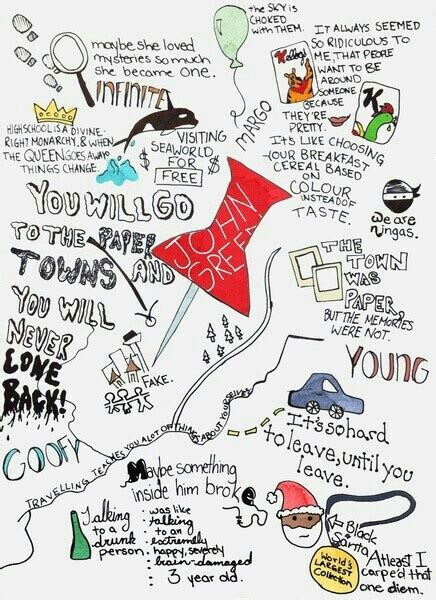 the SKY IS
CHOKED
WITH THEM.
maybe she loved
mysteries so much
she became one.
INFINITE
MARGO
IT ALWAYS SEEMED
SO RIDICULOUS TO
ME, THAT PEOPLE
WANT TO BE
AROUND
SOMEONE
BECAUSE
THEY'RE
PRETTY.
IT'S LIKE CHOOSING
YOUR BREAKFAST
CEREAL BASED
ON
COLOUR
INSTEAD OF
TASTE.
K
HIGHSCHOOL IS A DIVINE-
RIGHT MONARCHY, & WHEN
THE QUEEN GOES AWAY
THINGS CHANGE.
$ VISITING $
SEAWORLD
FOR
FREE
we are
ningas.
YOU WILL GO
TO THE PAPER
TOWNS AND
YOU WILL
NEVER
COME
BACK!
JOHN
GREEN
THE
TOWN
WAS
PAPER,
BUT THE MEMORIES
WERE NOT.
YOUNG
FAKE.
GOOFY
TRAVELLING TEACHES YOU A LOT OF THINGS ABOUT YOURSELVES
It's so hard
to leave, until you
leave.
Maybe something
inside him broke
Talking
to a
drunk
person
was like
talking
to an
extremely
happy, severely
brain-damaged
3 year old.
Black
Santa
WORLD'S
LARGEST
Collection
At least I
carpe'd that
one diem.